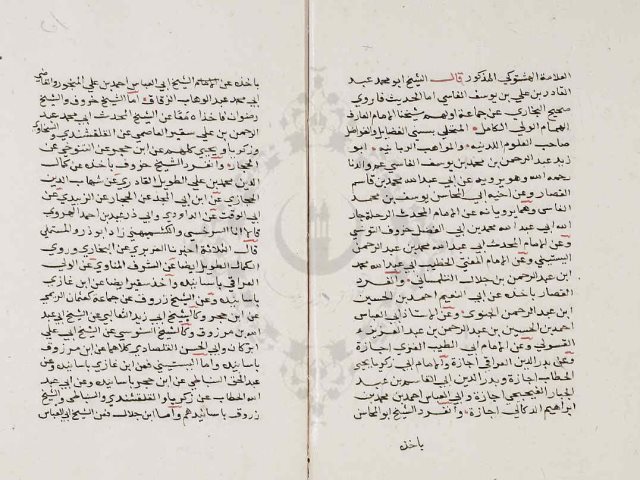 العلامة الهشتوكي المذكور قال الشيخ ابو محمد عبد
القادر بن علي بن يوسف الفاسي اما الحديث فاروي
صحيح البخاري عن جماعة اولهم شيخنا الامام العارف
الهمام الولي الكامل المتحلي بسني الفضايل والفواضل
صاحب العلوم اللدنيه والمواهب الربانيه ابو
زيد عبد الرحمن بن محمد بن يوسف الفاسي عم والدنا
رحمه الله وهو يرويه عن ابي عبد الله محمد بن قاسم
القصار وعن اخيه ابي المحاسن يوسف بن محمد
الفاسي وهما يرويانه عن الامام المحدث الرحلة جار
الله ابي عبد الله محمد بن ابي الفضل خروف التونسي
وعن الامام المحدث ابي عبد الله محمد بن عبد الرحمن
اليستيني وعن الامام المفتي الخطيب ابي عبد الله محمد
ابن عبد الرحمن بن جلال التلمساني وانفرد
القصار باخذه عن ابي النعيم احمد بن الحسين
ابن عبد الرحمن الجنوي وعن الاستاذ ابي العباس
احمد بن الحسين بن عبد الرحمن بن عبد العزيز
التسولي وعن الامام ابي الطيب الغزي اجازة
وعن بدر الدين القرافي اجازة والامام ابي زكريا يحيى
الحطاب اجازة وبدر الدين ابي القاسم بن عبد
الجبار الفيجيجي اجازة وابي العباس احمد بن محمد بن
ابراهيم الدكالي اجازة وانفرد الشيخ ابو المحاسن
باخذه
باخذه عن الامام الشيخ ابي العباس احمد بن علي المنجور والقاضي
ابي محمد عبد الوهاب الزقاق اما الشيخ خروف والشيخ
رضوان فاخذاه معا عن الشيخ المحدث ابي محمد عبد
الرحمن بن علي سقين العاصمي عن القلقشندي والسخاوي
وزكريا ويحيى كلهم عن ابن حجر عن التنوخي عن
الحجار وانفرد الشيخ خروف باخذه عن كمال
الدين محمد بن علي الطويل القادري عن شهاب الدين
الحجازي عن ابن ابي المجد عن الحجار عن الزبيدي عن
ابي الوقت عن الداودي وابي ذر عبد بن احمد الهروي
قالا انا السرخسي والكشميهني زاد ابو ذر والمستملي
قال الثلاثة اخبرنا الفربري عن البخاري وروي
الكمال الطويل ايضا عن الشرف المناوي عن الولي
العراقي باسانيده واخذ سقين ايضا عن ابن غازي
باسانيده وعن الشيخ زروق عن جماعة كعثمان الديمي
عن ابن حجر وكابي زيد الثعالبي عن الشيخ ابي عبد
الله بن مرزوق وكالشيخ السنوسي عن الشيخ ابي علي
ابركان وابي الحسن القلصادي كلاهما عن ابن مرزوق
باسانيده واما اليستيني فعن ابن غازي باسانيده وعن
عبد الحق السنباطي عن ابن حجر باسانيده وعن ابي عبد
الله الحطاب عن زكريا والقلقشندي والسنباطي والشيخ
زروق باسانيدهم واما ابن جلال فعن الشيخ ابي العباس